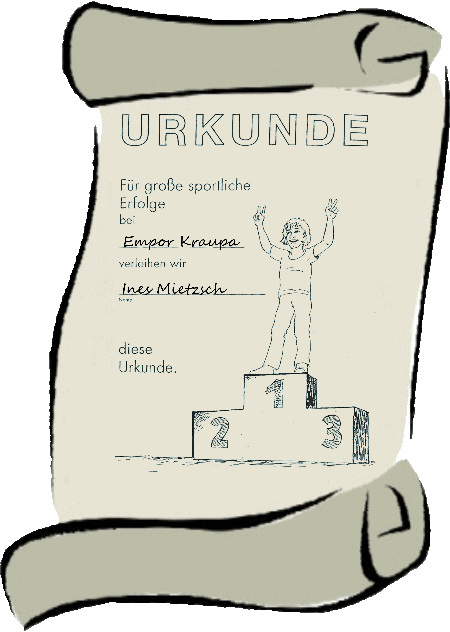 URKUNDE
Für große sportliche
Erfolge
bei
Empor Kraupa
verleihen wir
Ines Mietzsch
Name
diese
Urkunde.
1
2 3